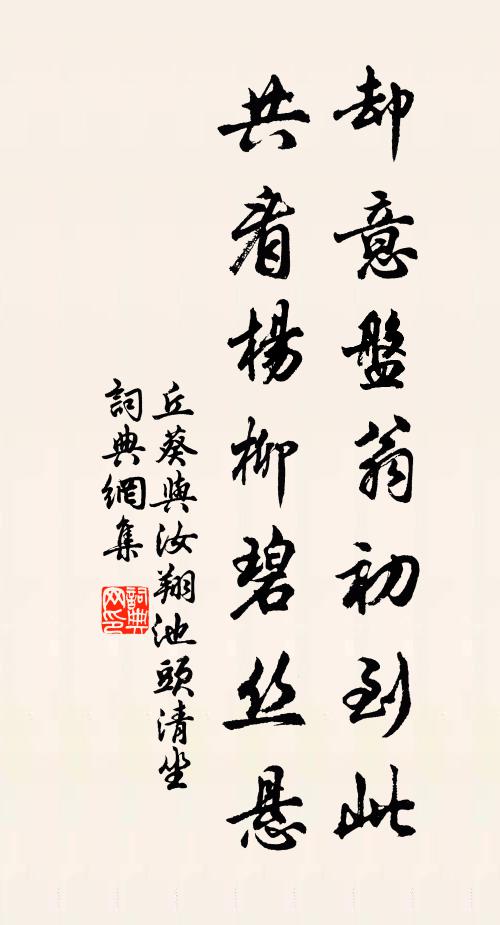 却意盤翁初到此
共看楊柳碧丝悬
丘葵與汝翔池頭清坐
詞典網集
詞典网印